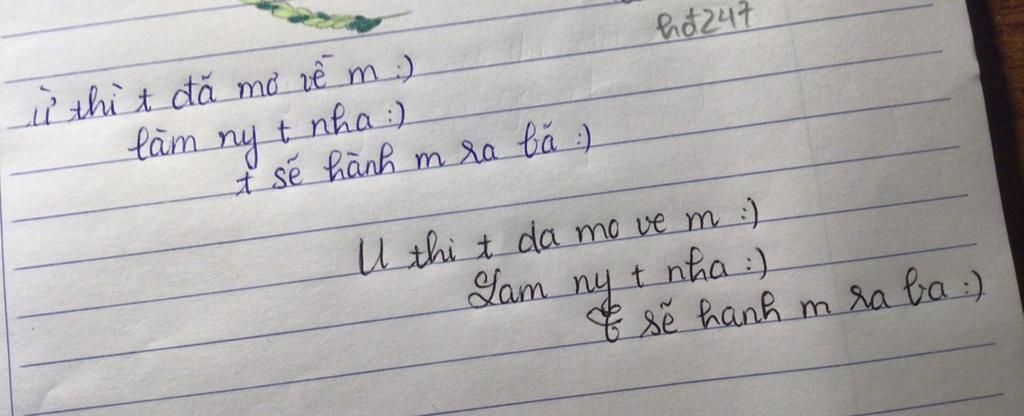 hđ247
ừ thì t đã mơ về m :)
làm ny t nha :)
t sẽ hành m ra bã :)
U thi t da mo ve m :)
Lam ny t nha :)
t sẽ hanh m ra ba :)